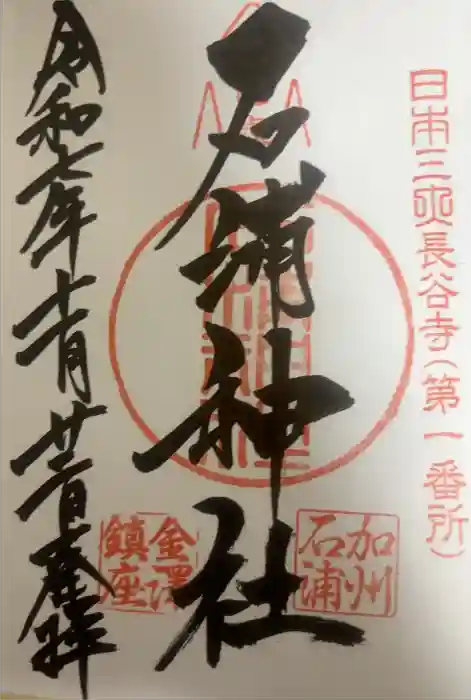 日本三長谷寺(第一番所)
石浦神社
加州
石浦
金澤
鎮座
令和七年十一月廿二日奉拝